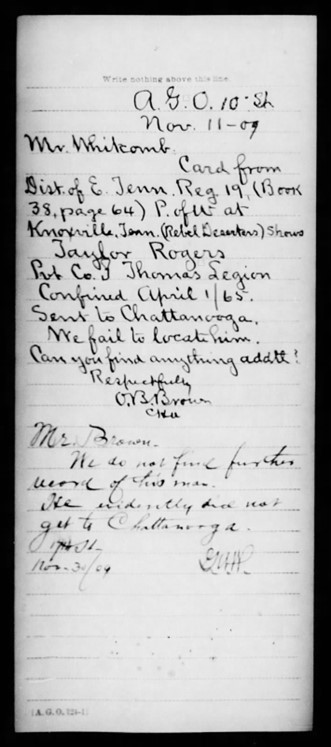 Write nothing above this line.
A.G.O. 10" St.
Nov. 11-09
Mr. Whitcomb.
Card from
Dist. of E. Tenn. Reg 19, (Book
38, page 64) P. of W. at
Knoxville, Tenn. (Rebel Deserters) Shows
Taylor Rogers
Pvt. Co. I Thomas Legion
Confined April 1/65.
Sent to Chattanooga.
We fail to locate him.
Can you find anything addtl?
Respectfully
O.B. Brown
Mr. Brown.
We do not find further
record of this man.
He evidently did not
get to Chattanooga.
Nov. 30/09
(A. G. O. 224-1)